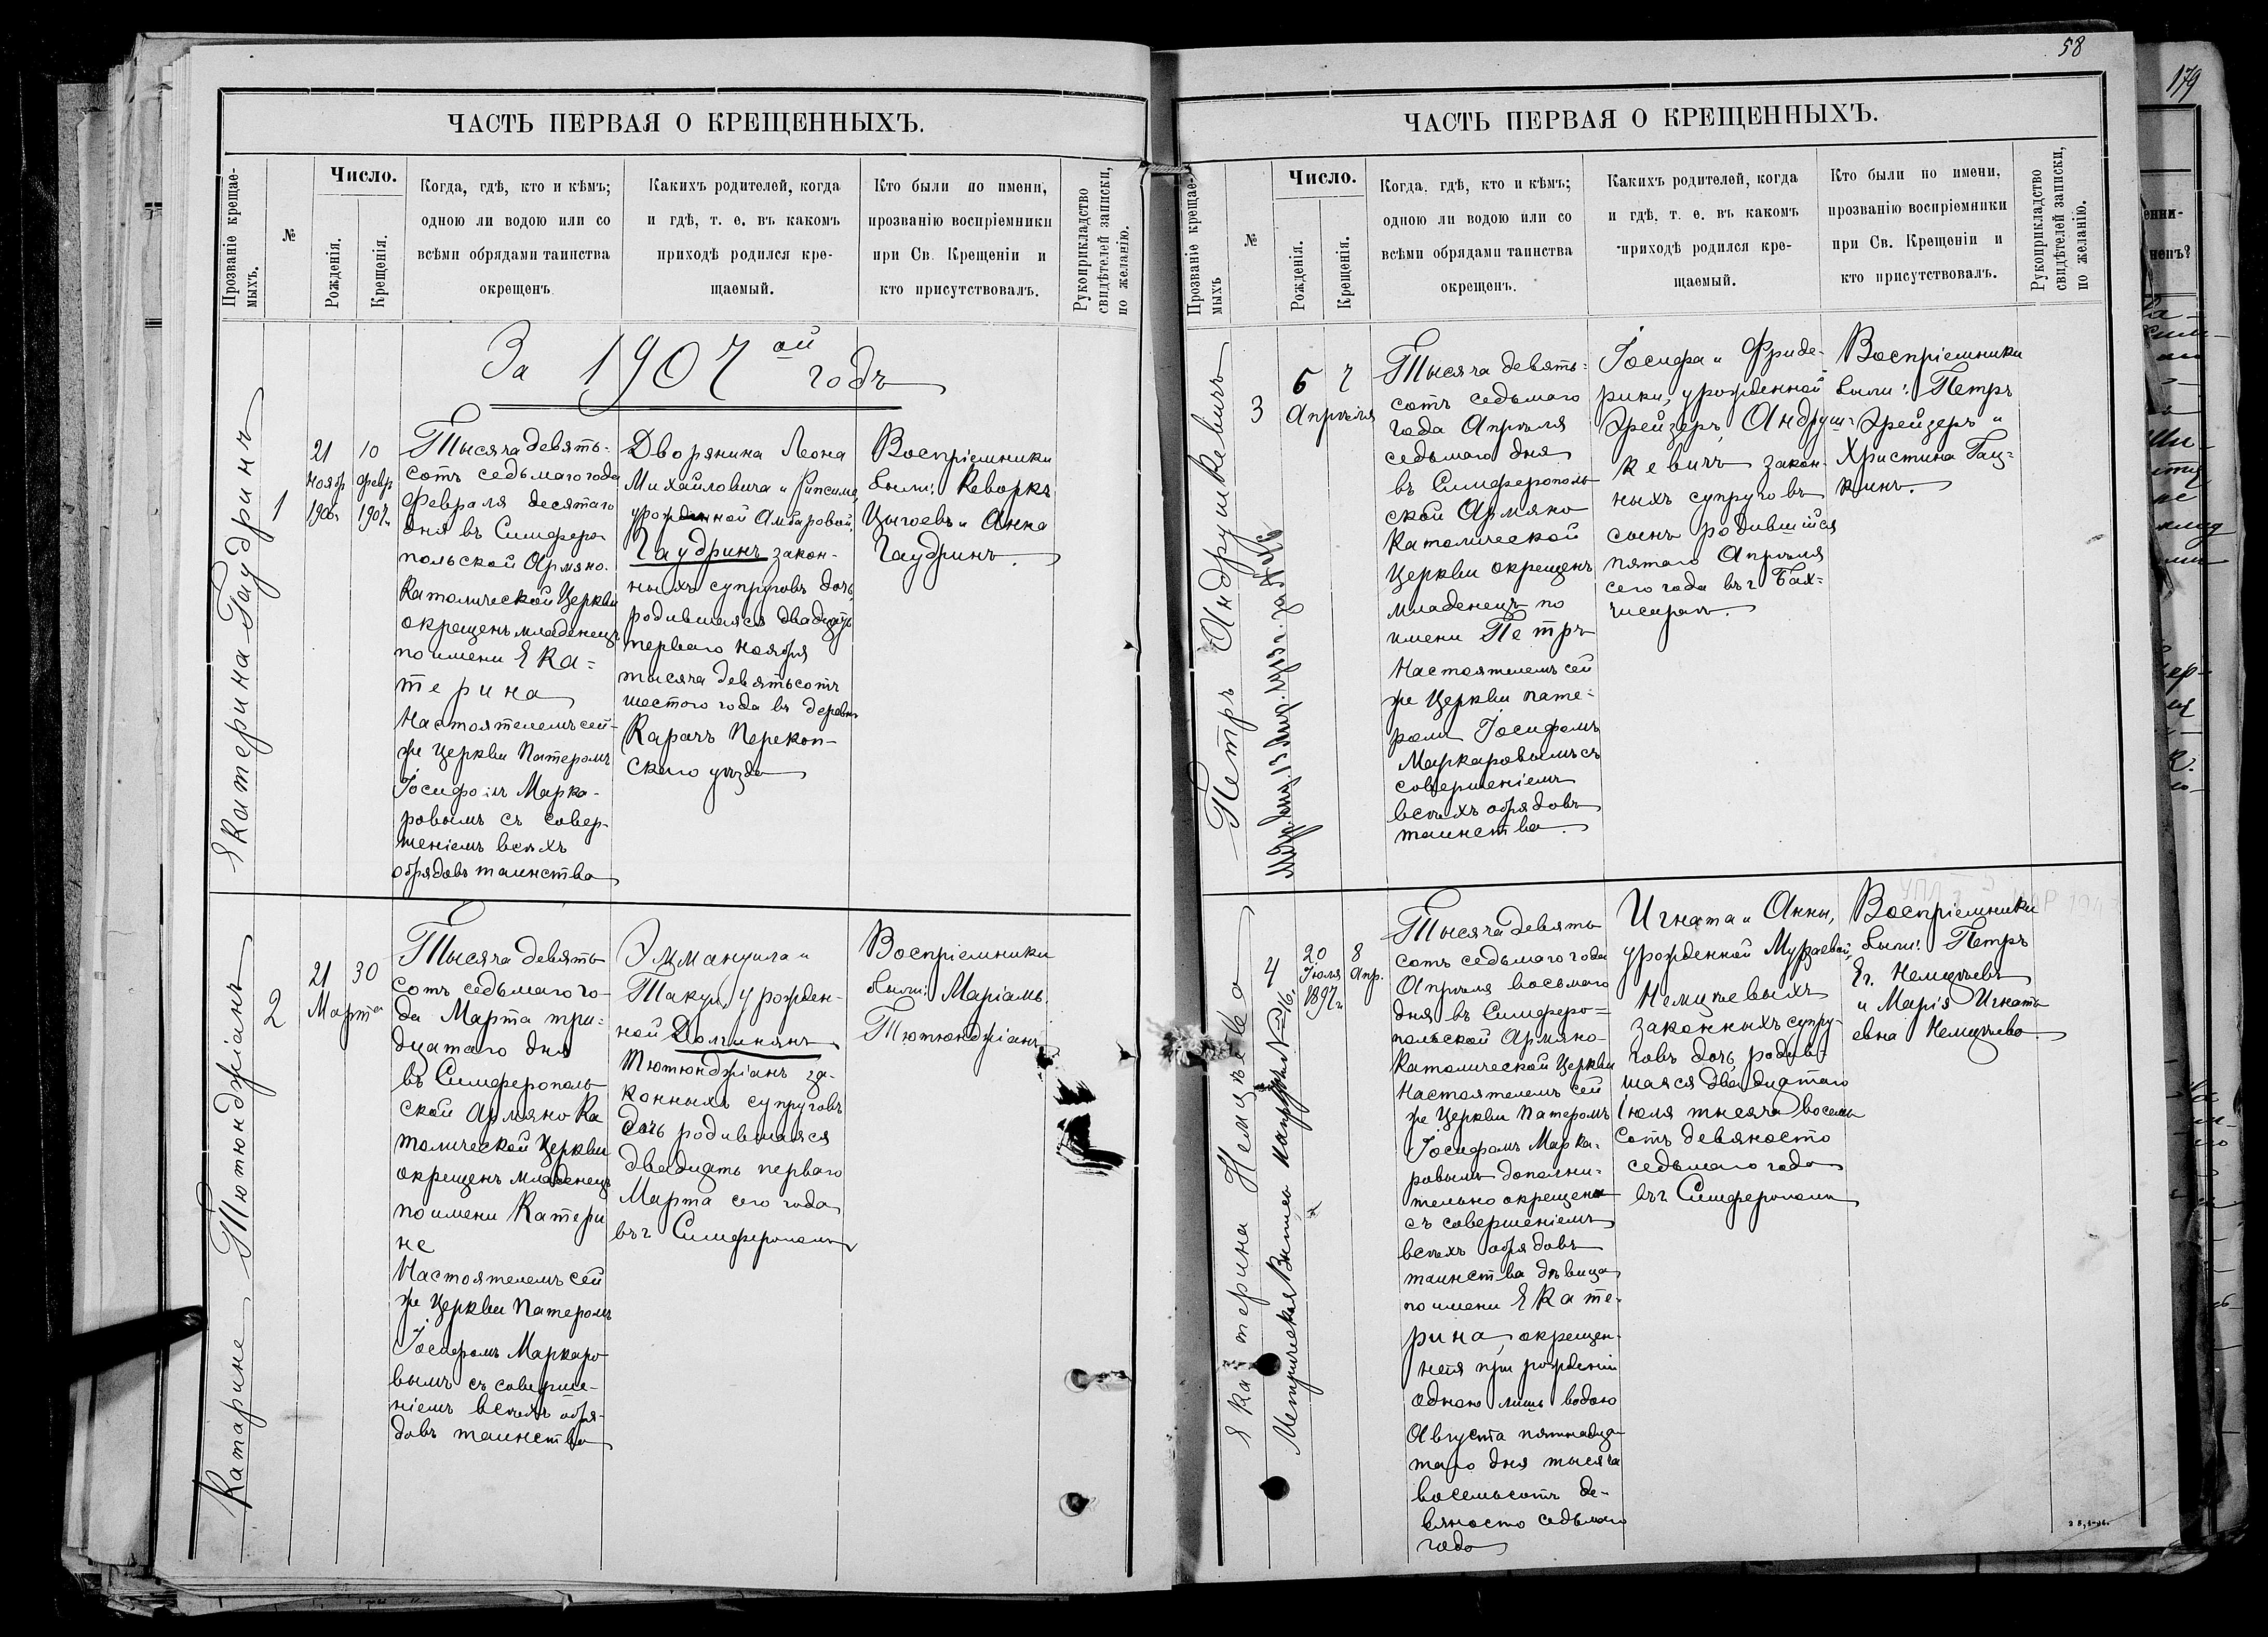 58
179
ЧАСТЬ ПЕРВАЯ О КРЕЩЕННЫХЪ.
Прозваніе крещае-
мыхъ.
№
Число.
Рожденія.
Крещенія.
Когда, гдѣ, кто и кѣмъ;
одною ли водою или со
всѣми обрядами таинства
окрещенъ
Какихъ родителей, когда
и гдѣ, т. е. въ какомъ
приходѣ родился кре-
щаемый.
Кто были по имени,
прозванію воспріемники
при Св. Крещеніи и
кто присутствовалъ.
Рукоприкладство
свидѣтелей записки,
по желанію.
За 1907 ой годъ
Екатерина Гаудринъ
1
21
Ноябр
1906 г.
10
Февр
1907 г.
Тысяча девять-
сотъ седьмаго года
Февраля десятаго
дня въ Симферо
польской Армяно-
Католической Церкви
окрещенъ младенецъ
по имени Ека=
терина
Настоятелемъ сей-
же Церкви Патеромъ
Іосифомъ Марка-
ровымъ съ совер-
шеніемъ всѣхъ
обрядовъ таинства
Дворянина Леона
Михайловича и Рипсиме,
урожденной Амбаровой,
Гаудринъ закон-
ныхъ супруговъ дочь,
родившаяся двадцать
перваго Ноября
тысяча девятьсотъ
шестого года въ деревнѣ
Карачъ Перекоп-
скаго уѣзда
Воспріемники
были: Кеворкъ
Цыгоевъ и Анна
Гаудринъ.
Катарине Тютюнджіанъ
2
21 30
Марта
Тысяча девять
сотъ седьмаго го-
да Марта три-
дцатаго дня
въ Симферополь
ской Армяно Ка
толической Церкви
окрещенъ младенецъ
по имени Катери
не
Настоятелемъ сей
же Церкви Патеромъ
Іосифомъ Маркаро
вымъ съ соверше-
ніемъ всѣхъ обря-
довъ таинства
Эммануила и
Такуи, урожден-
ной Долгинянъ
Тютюнджіанъ за-
конныхъ супруговъ
дочь родившаяся
двадцать перваго
Марта сего года
въ г Симферополѣ
Воспріемники
были: Маріамъ
Тютюнджіанъ
ЧАСТЬ ПЕРВАЯ О КРЕЩЕННЫХЪ.
Прозваніе крещае-
мыхъ
№
Число.
Рожденія.
Крещенія.
Когда, гдѣ, кто и кѣмъ;
одною ли водою или со
всѣми обрядами таинства
окрещенъ.
Какихъ родителей, когда
и гдѣ, т. е. въ какомъ
приходѣ родился кре-
щаемый.
Кто были по имени,
прозванію воспріемники
при Св. Крещеніи и
кто присутствовалъ.
Рукоприкладство
свидѣтелей записки,
по желанію.
Петръ Андрушкевичъ
3
5 7
Апрѣля
Тысяча девять=
сотъ седьмаго
года Апрѣля
седьмаго дня
въ Симферополь
ской Армяно
Католической
Церкви окрещенъ
младенецъ по
имени Петръ
Настоятелемъ сей
же Церкви пате-
ромъ Іосифомъ
Маркаровымъ съ
совершеніемъ
всѣхъ обрядовъ
таинства.
Іосифа и Фриде-
рики, урожденной
Крейзеръ, Андруш-
кевичъ закон-
ныхъ супруговъ
сынъ родившійся
пятаго Апрѣля
сего года въ г Бах=
чисараѣ.
Воспріемники
были: Петръ
Крейзеръ и
Христина Гац=
кинъ.
Екатерина Немцѣева
4
20
Іюля
1897 г.
8
Апр.
Тысяча девять
сотъ седьмаго года
Апрѣля восьмаго
дня въ Симферо=
польской Армяно-
Католической Церкви
Настоятелемъ сей
же Церкви Патеромъ
Іосифомъ Марка-
ровымъ дополни-
тельно окрещена
съ совершеніемъ
всѣхъ обрядовъ
таинства дѣвица
по имени Екате-
рина, окрещен-
ная при рожденіи
одною лишь водою
Августа пятнадца
таго дня тысяча
восемьсотъ де-
вяносто седьмаго
года
Игната и Анны,
урожденной Мураевой,
Немцѣевыхъ
законныхъ супру-
говъ дочь родив-
шаяся двадцатаго
Іюля тысяча восемь
сотъ девяносто
седьмаго года
въ г Симферополѣ
Воспріемники
были: Петръ
Ег. Немцѣевъ
и Марія Игнать
евна Немцѣева